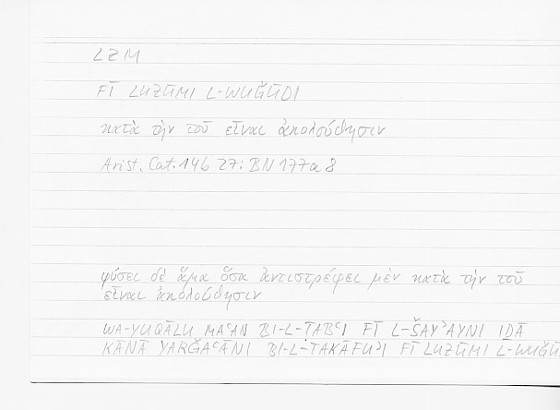 LZM
FĪ LUZŪMI L-WUǦŪDI
κατὰ τὴν τοῦ εἶναι ἀκολούθησιν
Arist. Cat. 14b 27: BN 177a 8
φύσει δὲ ἅμα ὅσα ἀντιστρέφει μὲν κατὰ τὴν τοῦ
εἶναι ἀκολούθησιν
WA-YUQĀLU MAʿAN BI-L-ṬABʿI FĪ L-ŠAYʾAYNI IḎĀ
KĀNĀ YARǦAʿĀNI BI-L-TAKĀFUʾI FĪ LUZŪMI L-WUǦŪ